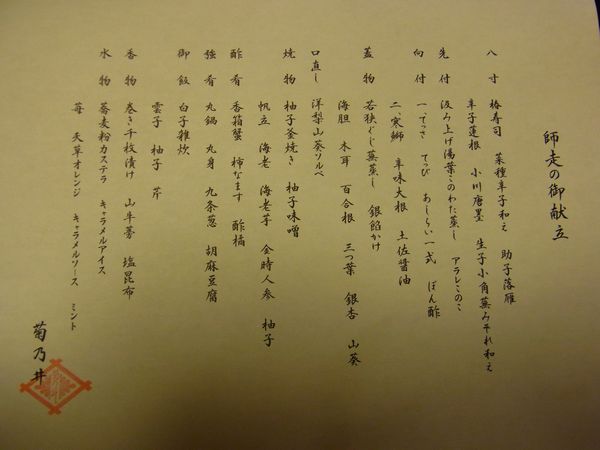 師走の御献立
八寸 椿寿司 菜種辛子和え 助子落雁
辛子蓮根 小川唐墨 生子小角蕪みぞれ和え
先付 汲み上げ湯葉このわた蒸し アラレこのこ
向付 一、てっさ てっぴ あしらい一式 ぽん酢
二、寒鰤 辛味大根 土佐醤油
蓋物 若狭ぐじ蕪蒸し 銀餡かけ
海胆 木耳 百合根 三つ葉 銀杏 山葵
口直し 洋梨山葵ソルベ
焼物 柚子釜焼き 柚子味噌
帆立 海老 海老芋 金時人参 柚子
酢肴 香箱蟹 柿なます 酢橘
強肴 丸鍋 丸身 九条葱 胡麻豆腐
御飯 白子雑炊
雲子 柚子 芹
香物 巻き千枚漬け 山牛蒡 塩昆布
水物 蕎麦粉カステラ キャラメルアイス
苺 天草オレンジ キャラメルソース ミント
菊乃井